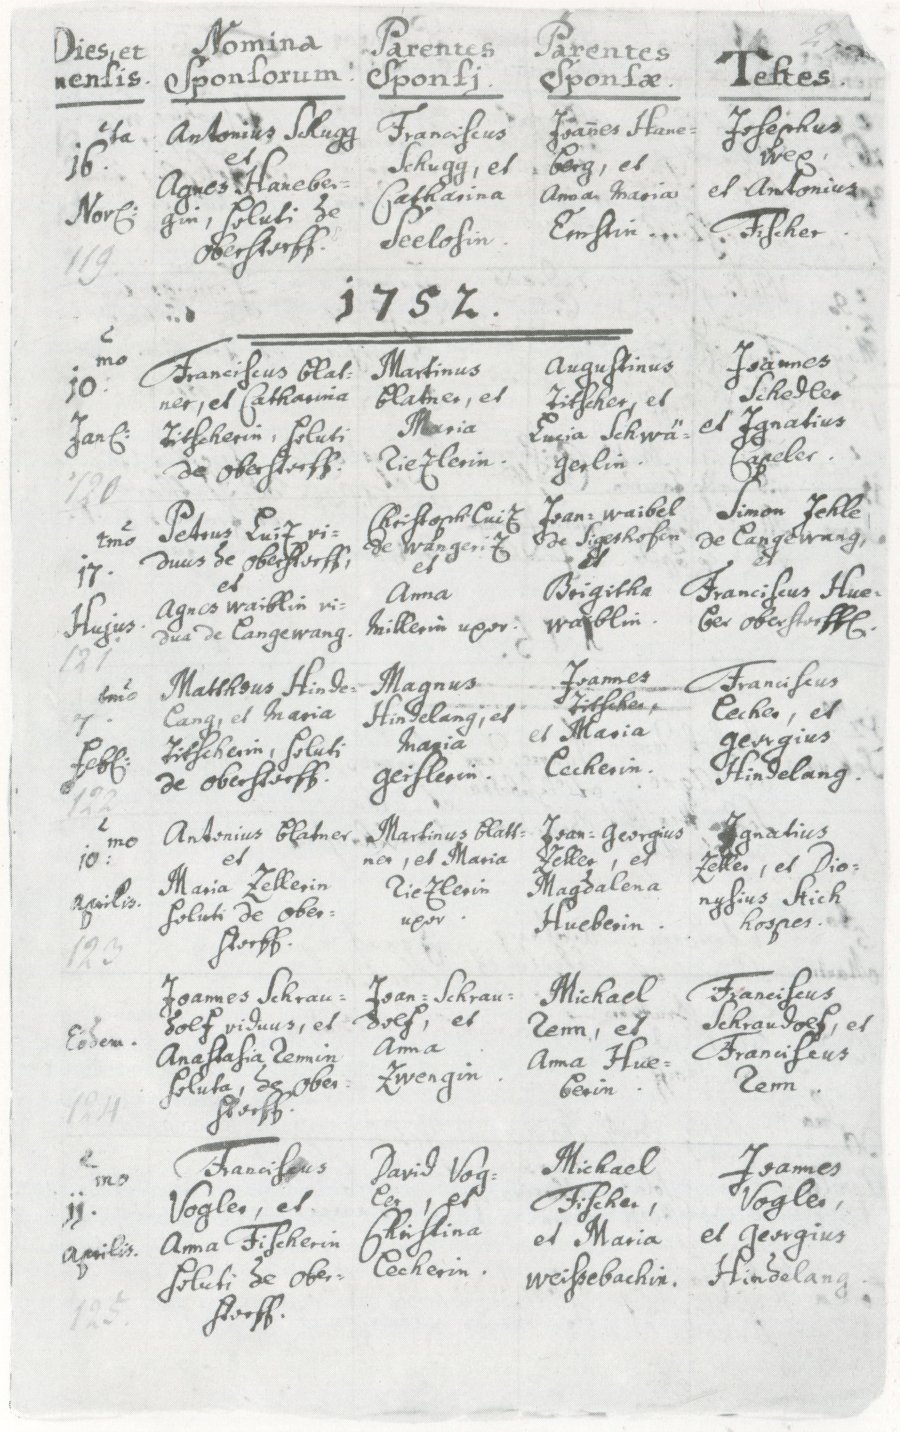 Dies, et
mensis.
Nomina
Sponsorum.
Parentes
Sponsi
Parentes
Sponsæ.
Testes
16ta
Novē:
119
Antonius Schugg
et
Agnes Haneber=
gin, soluti de
Oberstorff.
Franciscus
Schugg, et
Catharina
Seelosin.
Joannes Hane=
berg, et
Anna Maria
Ernstin ...
Josephus
Wex,
et Antonius
Fischer.
1752.
10mo
Janē:
120
Franciscus Blat=
ner, et Catharina
Zitscherin, soluti
de Oberstorff.
Martinus
Blatner, et
Maria
Riezlerin.
Augustinus
Zitscher, et
Lucia Schwä=
gerlin.
Joannes
Schedler
et Ignatius
Capeler.
17tmo
Hujus.
121
Petrus Luiz vi=
duus de Oberstorff,
et
Agnes Waiblin vi=
dua de Langewang.
Christoph Luiz
de Wangeriz
et
Anna
Millerin uxor.
Joan= Waibel
de Sigeshofen
et
Brigitha
Waiblin.
Simon Jehle
de Langewang,
et
Franciscus Hue=
ber Oberstorff.
7tmo
Febē:
122
Mattheus Hinde=
lang, et Maria
Zitscherin, soluti
de Oberstorff.
Magnus
Hindelang, et
Maria
Geislerin.
Joannes
Zitscher,
et Maria
Lecherin.
Franciscus
Lecher, et
Georgius
Hindelang.
10mo
Aprilis.
123
Antonius Blatner
et
Maria Zellerin
soluti de Ober=
storff.
Martinus Blatt=
ner, et Maria
Riezlerin
uxor.
Joan= Georgius
Zeller, et
Magdalena
Hueberin.
Ignatius
Zeller, et Dio=
nysius Stich
hospes.
Eodem.
124
Joannes Schrau=
dolf viduus, et
Anastasia Rennin
soluta, de Ober=
storff.
Joan= Schrau=
dolf, et
Anna
Zwengin.
Michael
Renn, et
Anna Hue=
berin.
Franciscus
Schraudolf, et
Franciscus
Renn.
11mo
Aprilis.
125
Franciscus
Vogler, et
Anna Fischerin
soluti de Ober=
storff.
David Vog=
ler, et
Christina
Lecherin.
Michael
Fischer,
et Maria
Weissebachin.
Joannes
Vogler,
et Georgius
Hindelang